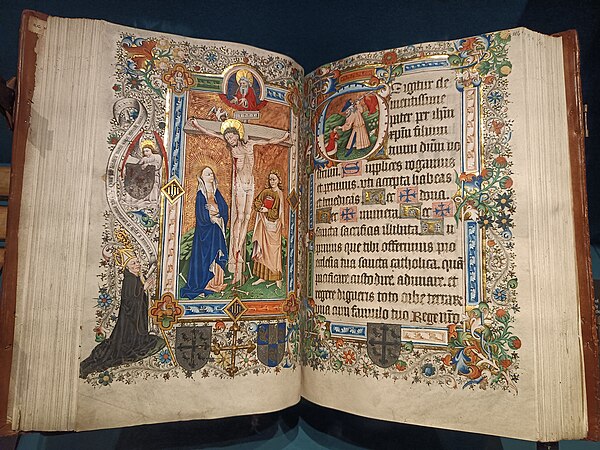 TE igitur cle
mentissime
pater per ihm
xpm filium
tuum dnm no
strum. Supplices rogamus
et petimus. uti accepta habeas
et benedicas hec ✠ dona
hec ✠ munera hec ✠
sancta sacrificia illibata. In
primis que tibi offerimus pro
ecclesia tua sancta catholica. quā
pacificare. custodire. adunare. et
regere digneris toto orbe terrarū
una cum famulo tuo Rege nro